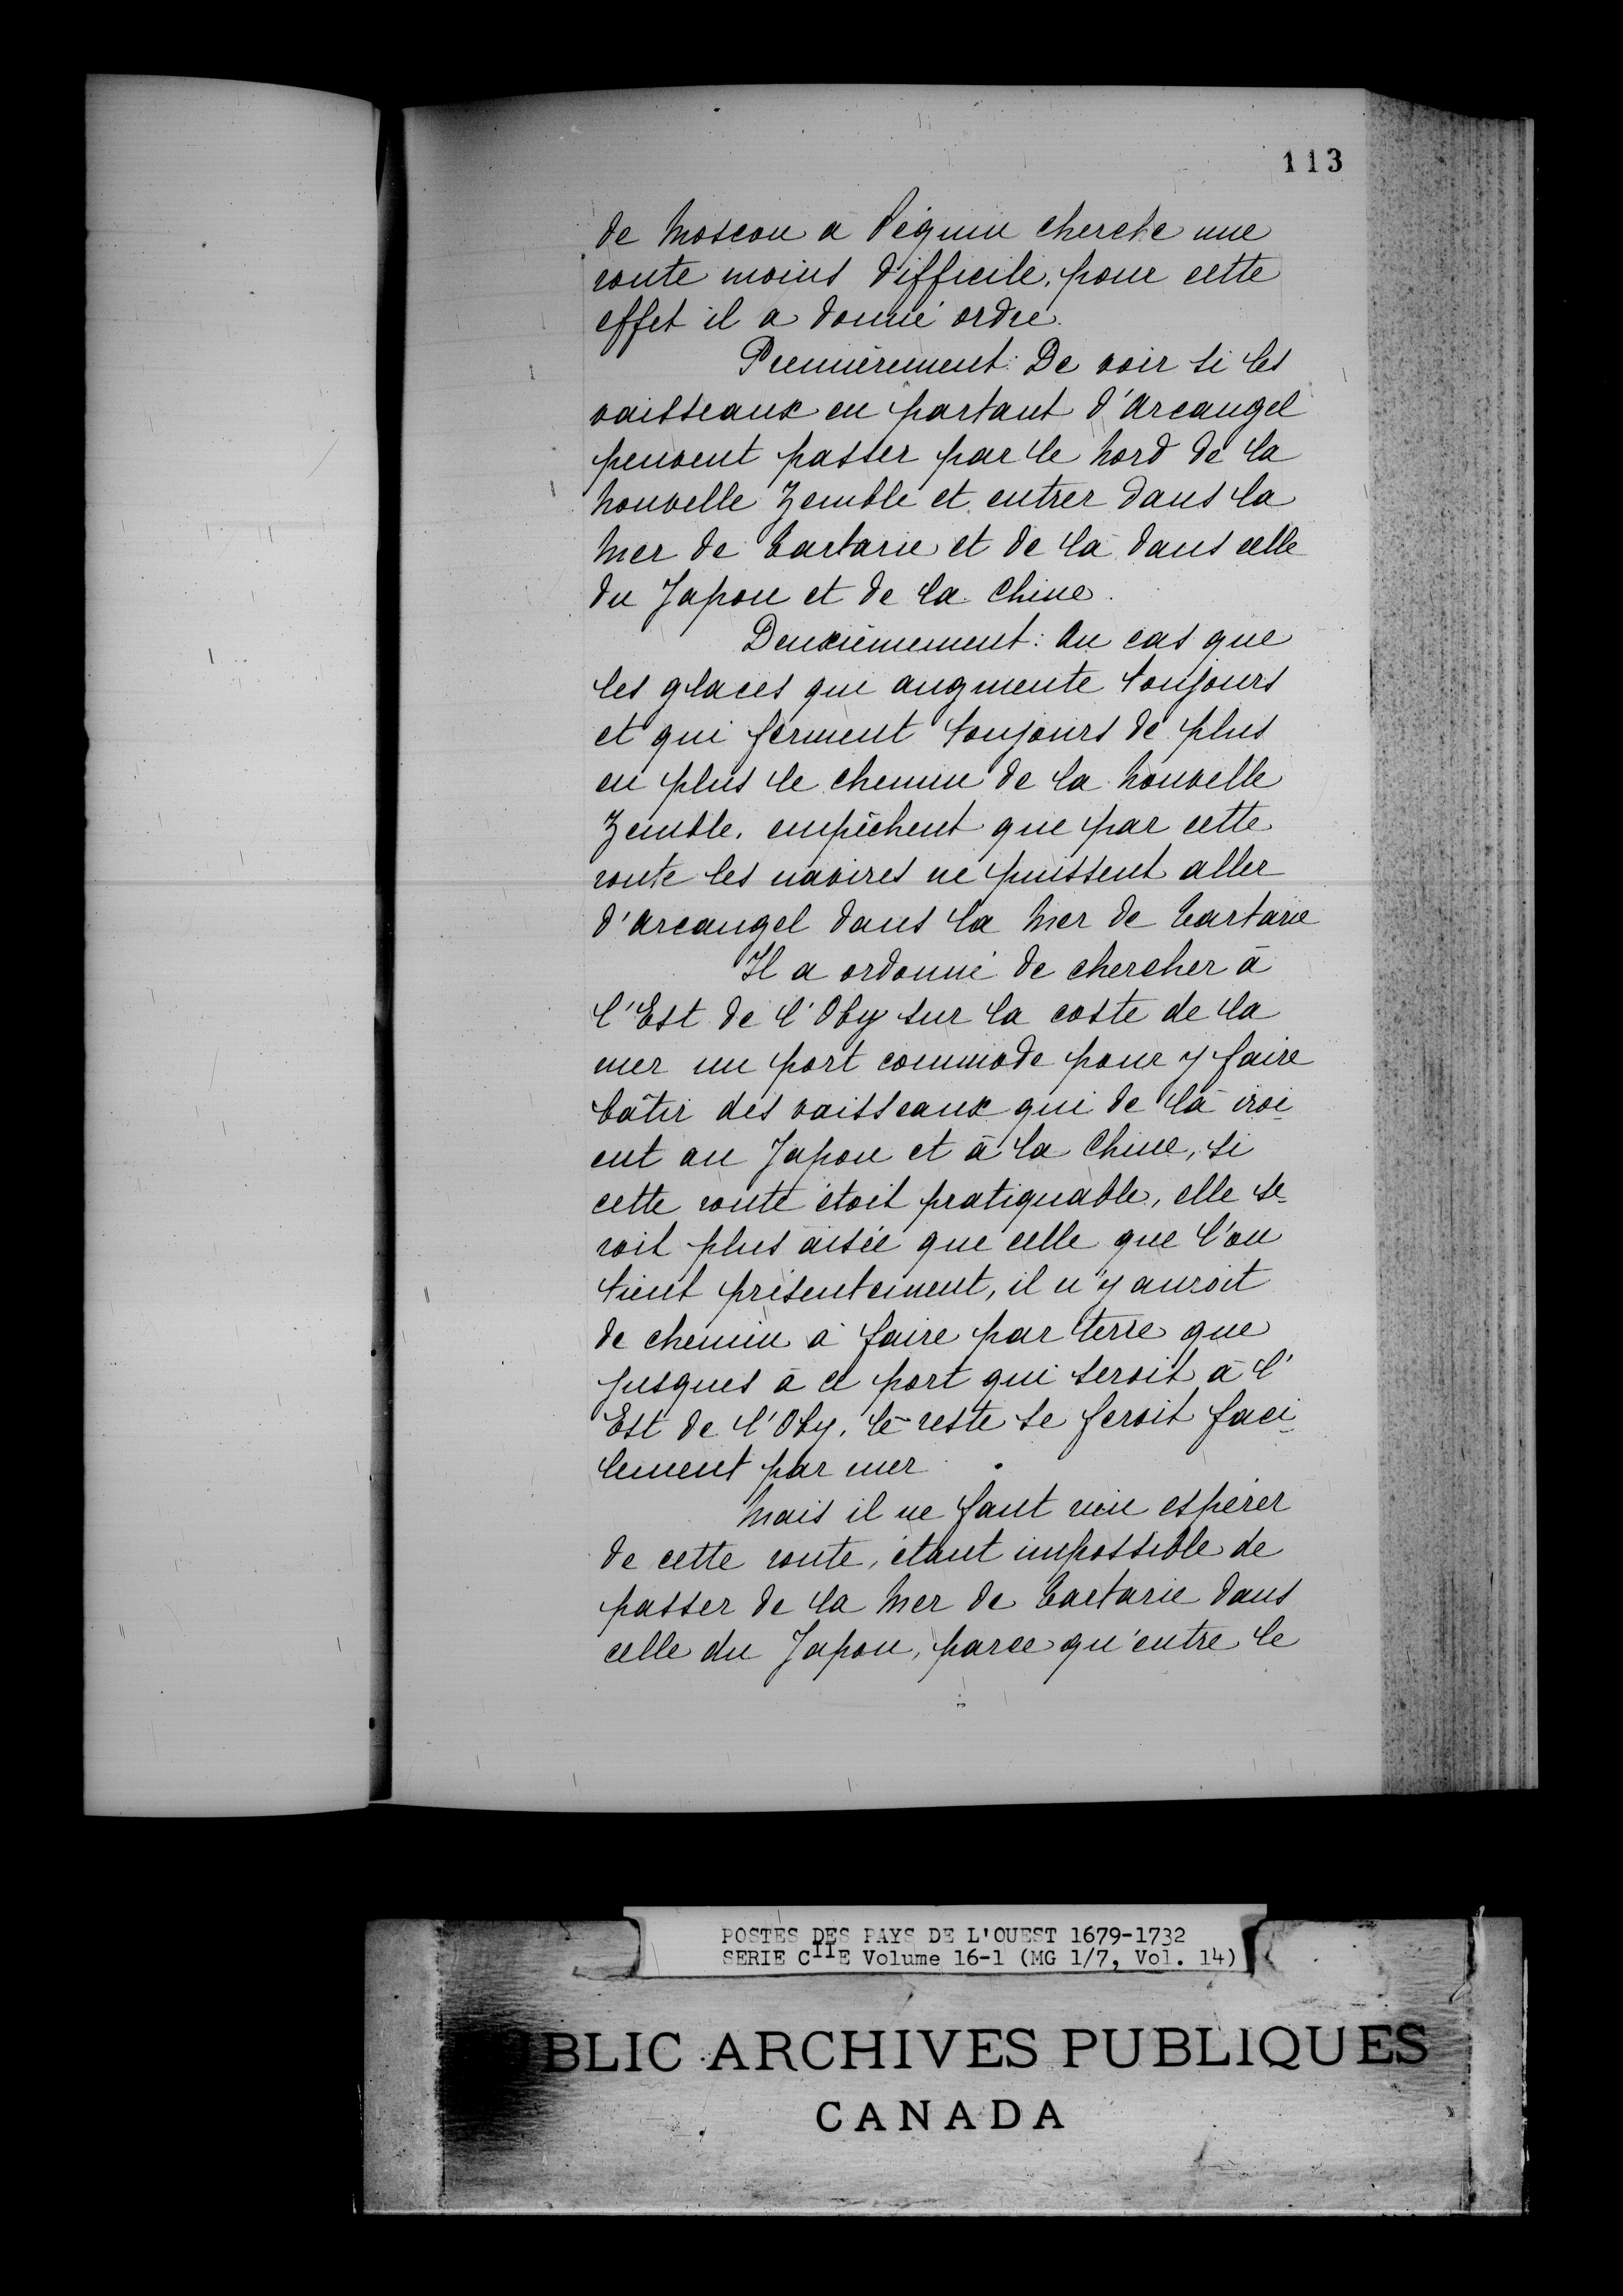 113
de Moscou à Péquin cherche une
route moins difficile, pour cette
effet il a donné ordre.
Premièrement: De voir si les
vaisseaux en partant d'Arcangel
peuvent passer par le Nord de la
Nouvelle Zemble et entrer dans la
Mer de Tartarie et de là dans celle
du Japon et de la Chine.
Deuxièmement: Au cas que
les glaces qui augmente toujours
et qui ferment toujours de plus
en plus le chemin de la Nouvelle
Zemble, empêchent que par cette
route les navires ne puissent aller
d'Arcangel dans la Mer de Tartarie
Il a ordonné de chercher à
l'Est de l'Oby sur la coste de la
mer un port commode pour y faire
bâtir des vaisseaux qui de là iroi-
ent au Japon et à la Chine, si
cette route étoit pratiquable, elle se-
roit plus aisée que celle que l'on
tient présentement, il n'y auroit
de chemin à faire par terre que
jusques à ce port qui seroit à l'
Est de l'Oby, le reste se feroit faci-
lement par mer.
Mais il ne faut rien espérer
de cette route, étant impossible de
passer de la Mer de Tartarie dans
celle du Japon, parce qu'entre le
POSTES DES PAYS DE L'OUEST 1679-1732
SERIE CIIE Volume 16-1 (MG 1/7, Vol. 14)
BLIC ARCHIVES PUBLIQUES
CANADA